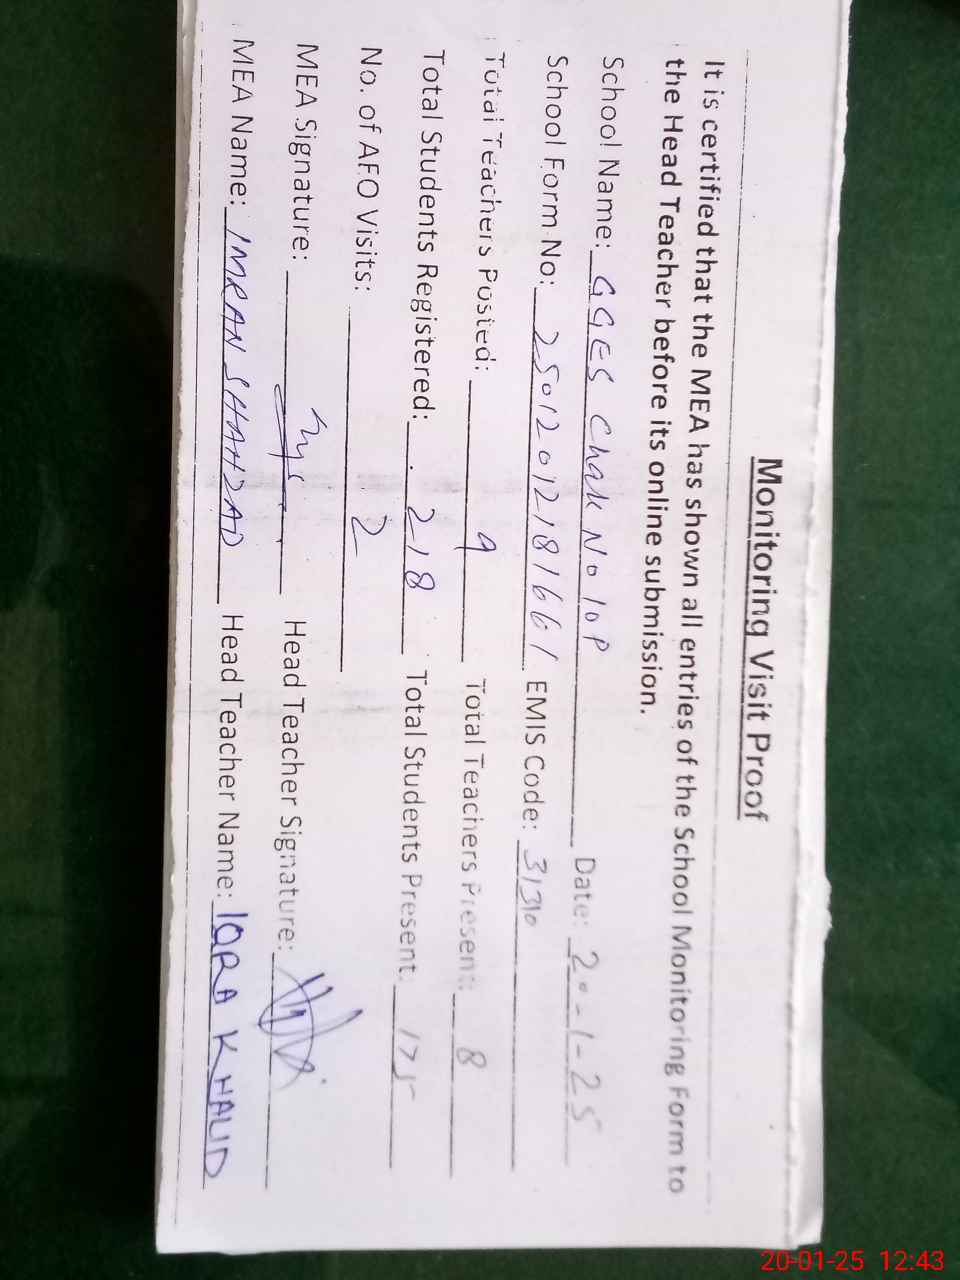 Monitoring Visit Proof
It is certified that the MEA has shown all entries of the School Monitoring Form to
the Head Teacher before its online submission.
School Name: GGES Chak No 10P Date: 20-1-25
School Form No: 25012012181661 EMIS Code: 31310
Total Teachers Posted: 9 Total Teachers Present: 8
Total Students Registered: 218 Total Students Present: 175
No. of AEO Visits: 2
MEA Signature: Head Teacher Signature:
MEA Name: IMRAN SHAHZAD Head Teacher Name: IQRA KHALID
20-01-25 12:43